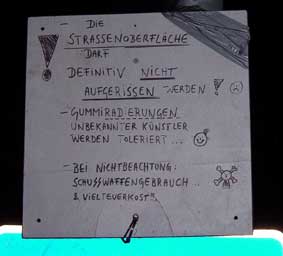 - DIE
STRASSENOBERFLÄCHE
DARF
DEFINITIV NICHT
AUFGERISSEN WERDEN !
- GUMMIRADIERUNGEN
UNBEKANNTER KÜNSTLER
WERDEN TOLERIERT ...
- BEI NICHTBEACHTUNG:
SCHUSSWAFFENGEBRAUCH ..
& VIELTEUERKOST!!